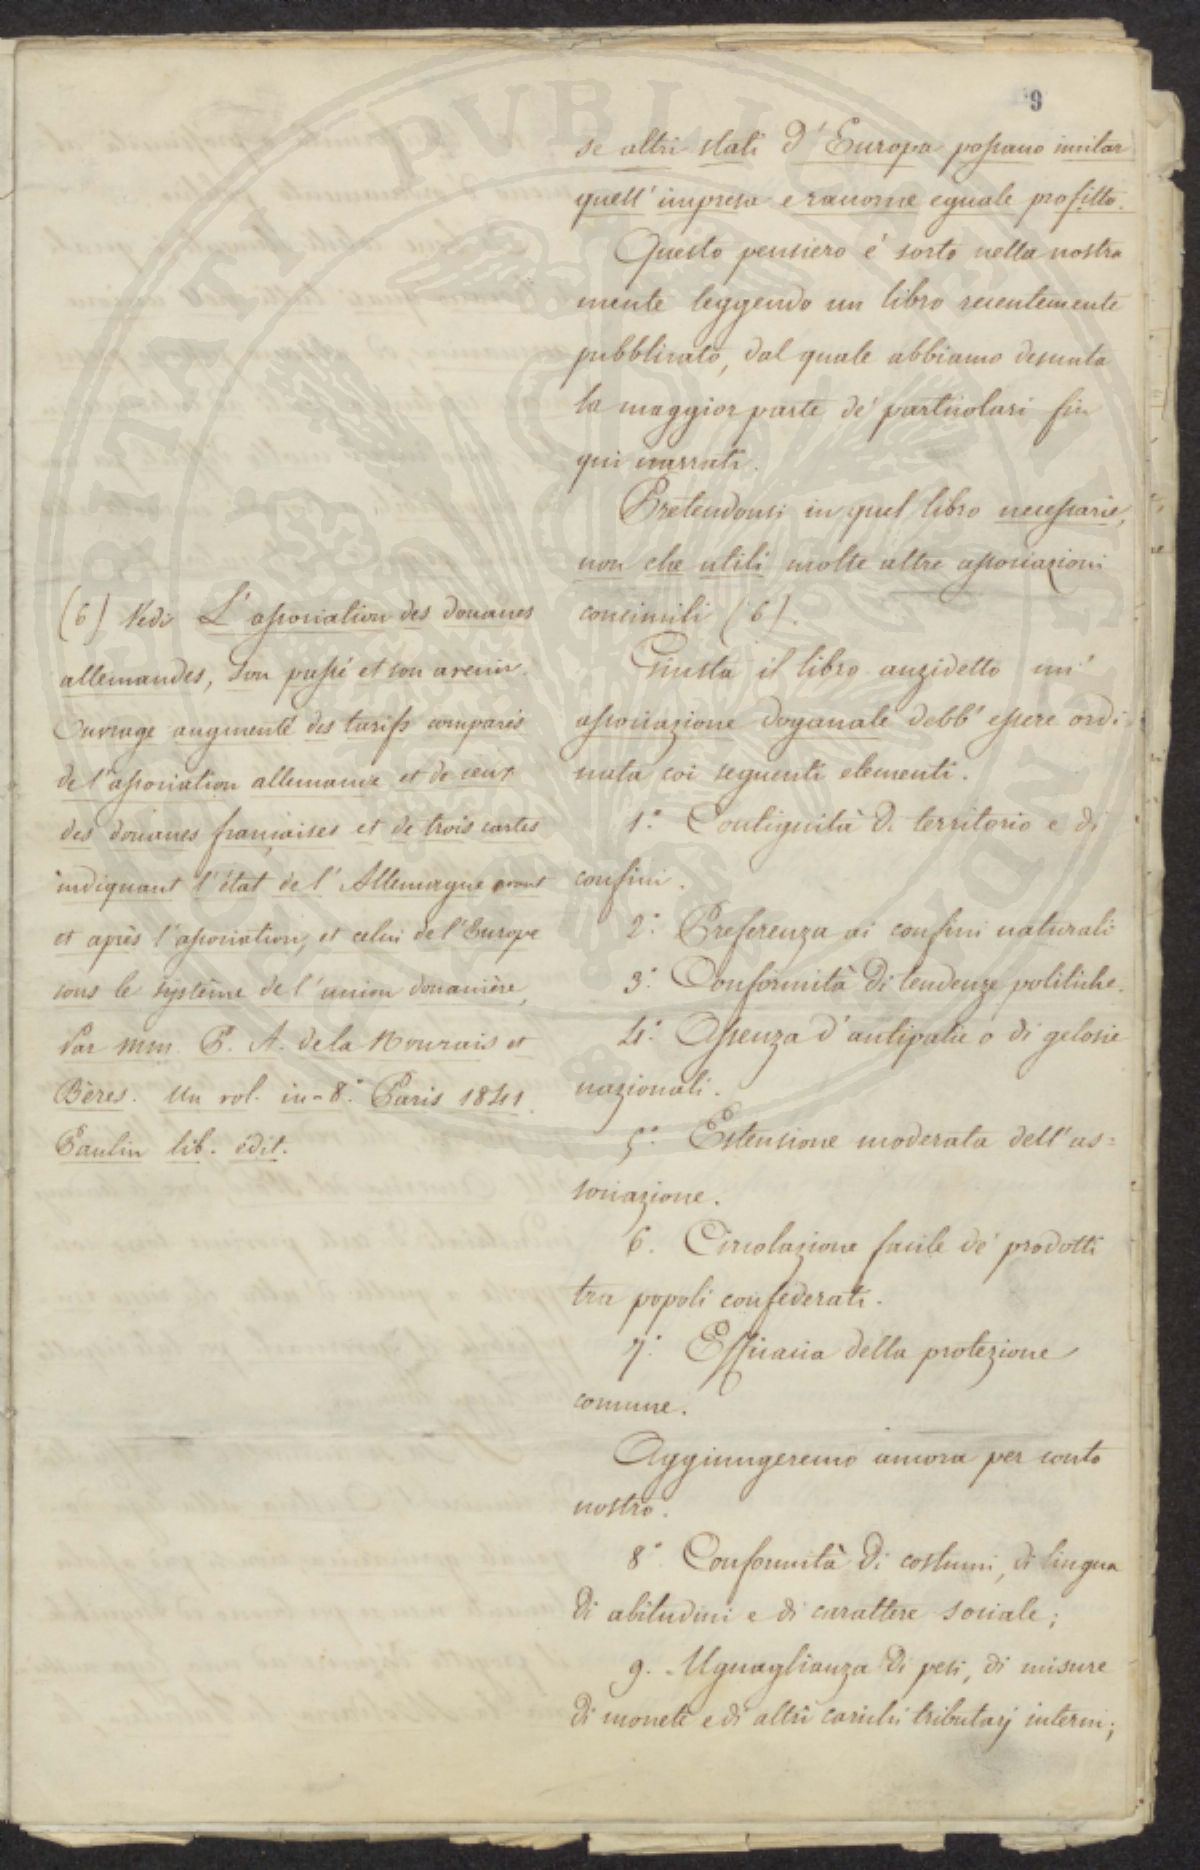 9
se altri stati d'Europa possano imitar
quell'impresa e racorne eguale profitto.
Questo pensiero é sorto nella nostra
mente leggendo un libro recentemente
pubblicato, dal quale abbiamo desunta
la maggior parte de' particolari fin
qui narrati.
Pretendonsi in quel libro necessarie,
non che utili molte altre associazioni
consimili (6).
Giusta il libro anzidetto un'
associazione doganale debb' essere ordi=
nata coi seguenti elementi.
1.° Contiguità di territorio e di
confini.
2.° Preferenza ai confini naturali
3.° Conformità di tendenze politiche.
4.° Assenza d'antipatie o di gelosie
nazionali.
5.° Estensione moderata dell'as=
sociazione.
6. Circolazione facile de' prodotti
tra popoli confederati.
7.° Efficacia della protezione
comune.
Aggiungeremo ancora per conto
nostro.
8.° Conformità di costumi, di lingua
di abitudini e di carattere sociale;
9. Uguaglianza di pesi, di misure
di monete e di altri carichi tributarj interni;
(6) Vedi L'association des douanes
allemandes, son passé et son avenir.
Ouvrage augmenté des tarifs comparés
de l'association allemande et de ceux
des douanes françaises et de trois cartes
indiquant l'état de l'Allemagne avant
et après l'association, et celui de l'Europe
sous le système de l'union douanière,
Par mm. P. A. de la Nourais et
Bères. Un vol. in-8.° Paris 1841.
Paulin lib. édit.